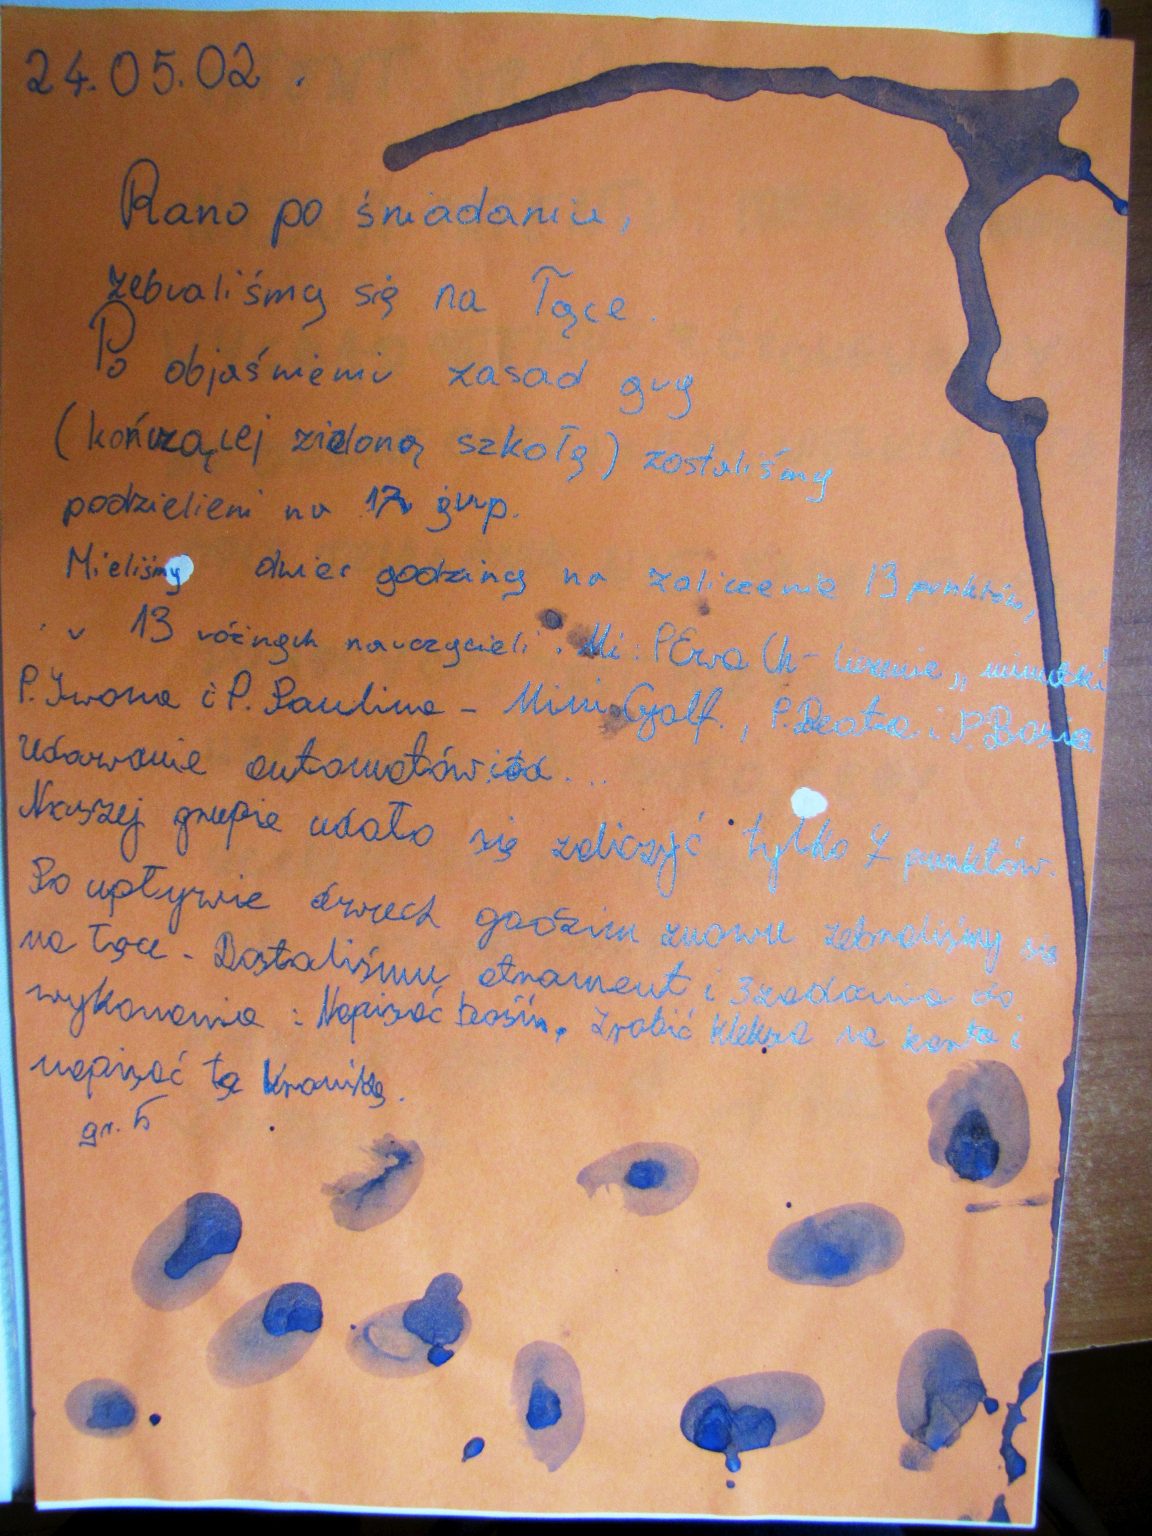 24.05.02.
Rano po śniadaniu,
zebraliśmy się na Łące.
Po objaśnieniu zasad gry
(kończącej zieloną szkołę) zostaliśmy
podzieleni na 12 grup.
Mieliśmy dwie godziny na zaliczenie 13 punktów,
u 13 różnych nauczycieli. Mi: P Ewa Ch- liczenie „minutki
P. Iwona i P. Paulina - Mini Golf., P. Beata i P. Basia
Udawanie automatów itd...
Naszej grupie udało się zaliczyć tylko 7 punktów.
Po upływie dwóch godzin znowu zebraliśmy się
na łące. Dostaliśmy atrament i 3 zadania do
wykonania: Napisać baśń, Zrobić kleksa na kartce i
napisać tą kronikę.
gr. 5